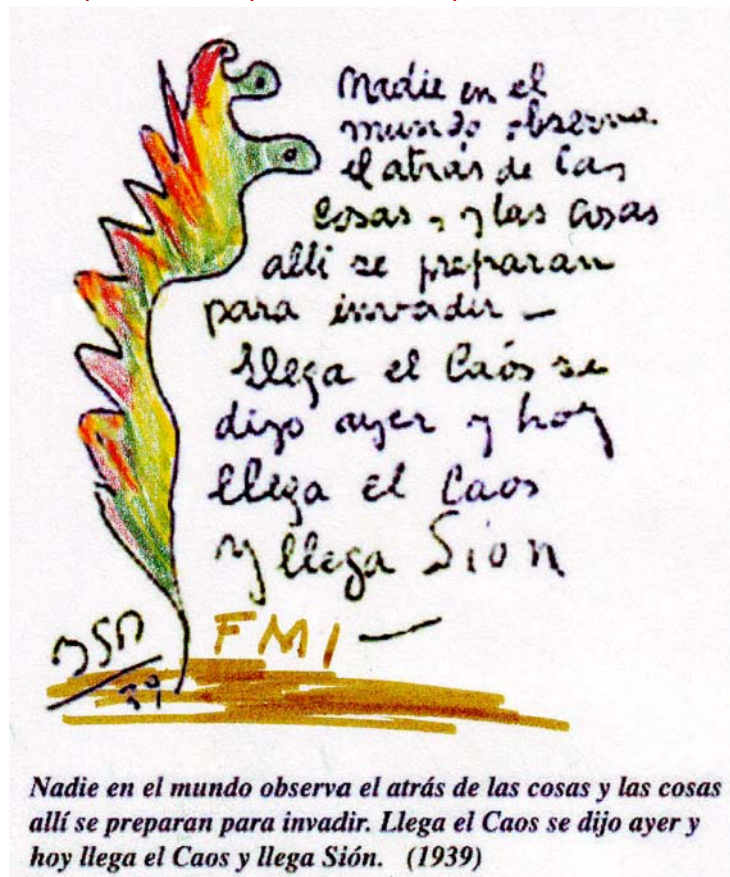 Nadie en el
mundo observa
el atrás de las
cosas, y las cosas
allí se preparan
para invadir —
Llega el Caós se
dijo ayer y hoy
llega el Caos
y llega Sion
FMI —
BSP
39
Nadie en el mundo observa el atrás de las cosas y las cosas
allí se preparan para invadir. Llega el Caos se dijo ayer y
hoy llega el Caos y llega Sión. (1939)